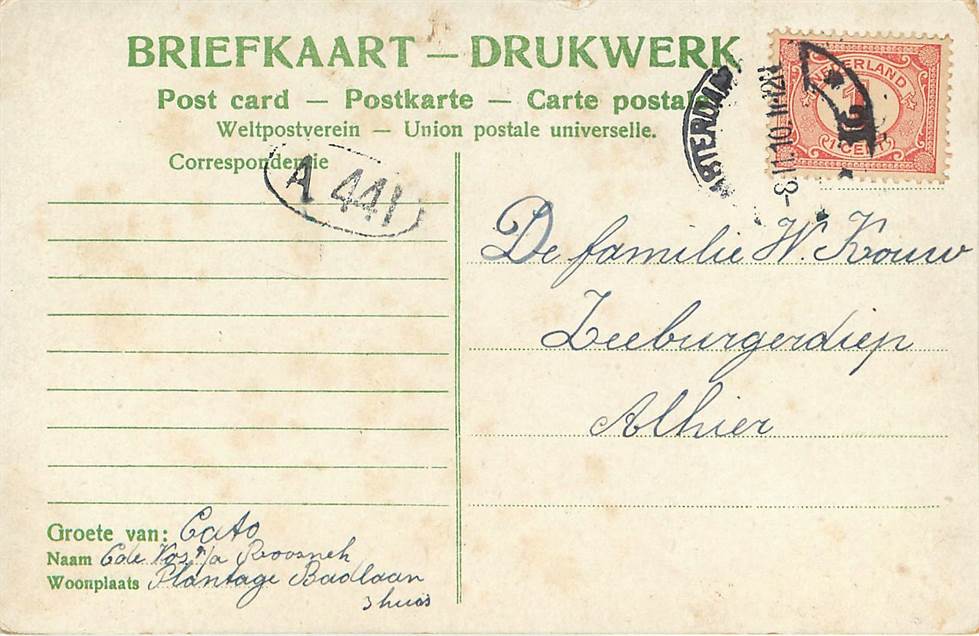 BRIEFKAART — DRUKWERK
Post card — Postkarte — Carte postale
Weltpostverein — Union postale universelle.
Correspondentie
A 441
AMSTERDAM
NEDERLAND
1
1 CENT
De familie W. Kouw
Zeeburgerdiep
Alhier
Groete van: Cato
Naam C de Vos p/a
Woonplaats Plantage Badlaan
3 huis